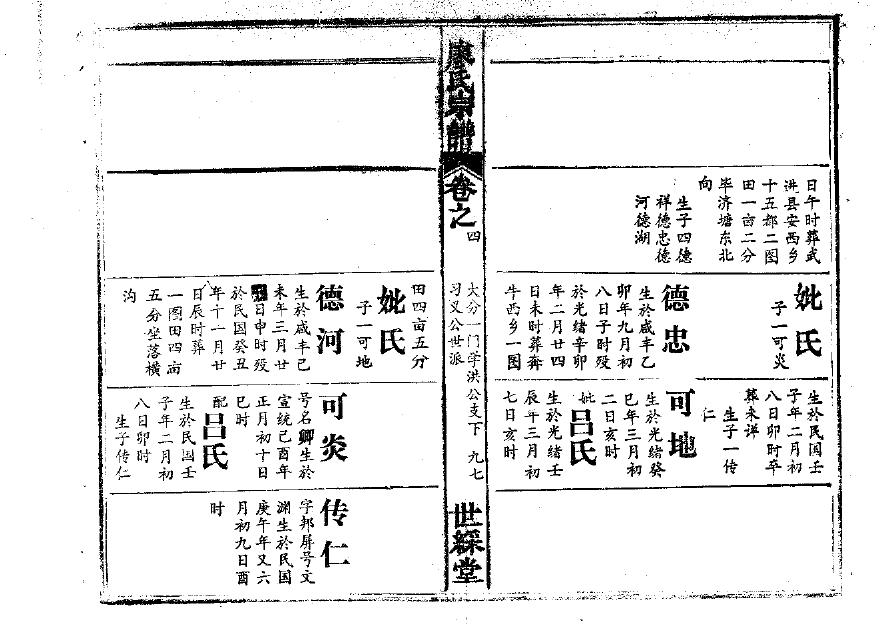 日午时葬武
洪县安西乡
十五都二图
田一亩二分
毕济塘东北
向
生子四德
祥德忠德
河德湖
妣氏
子一可炎
德忠
生於咸丰乙
卯年九月初
八日子时殁
於光绪辛卯
年二月廿四
日未时葬奔
牛西乡一图
生於民国壬
子年二月初
八日卯时卒
葬未详
生子一传
仁
可地
生於光绪癸
巳年三月初
二日亥时
妣吕氏
生於光绪壬
辰年三月初
七日亥时
廖氏宗谱
卷之四
大分一门学洪公支下
习义公世派
九七
世綵堂
田四亩五分
妣氏
子一可地
德河
生於咸丰己
未年三月廿
日申时殁
於民国癸丑
年十一月廿
日辰时葬
一图田四亩
五分坐落横
沟
可炎
号名卿生於
宣统己酉年
正月初十日
巳时
配吕氏
生於民国壬
子年二月初
八日卯时
生子传仁
传仁
字邦屏号文
渊生於民国
庚午年又六
月初九日酉
时